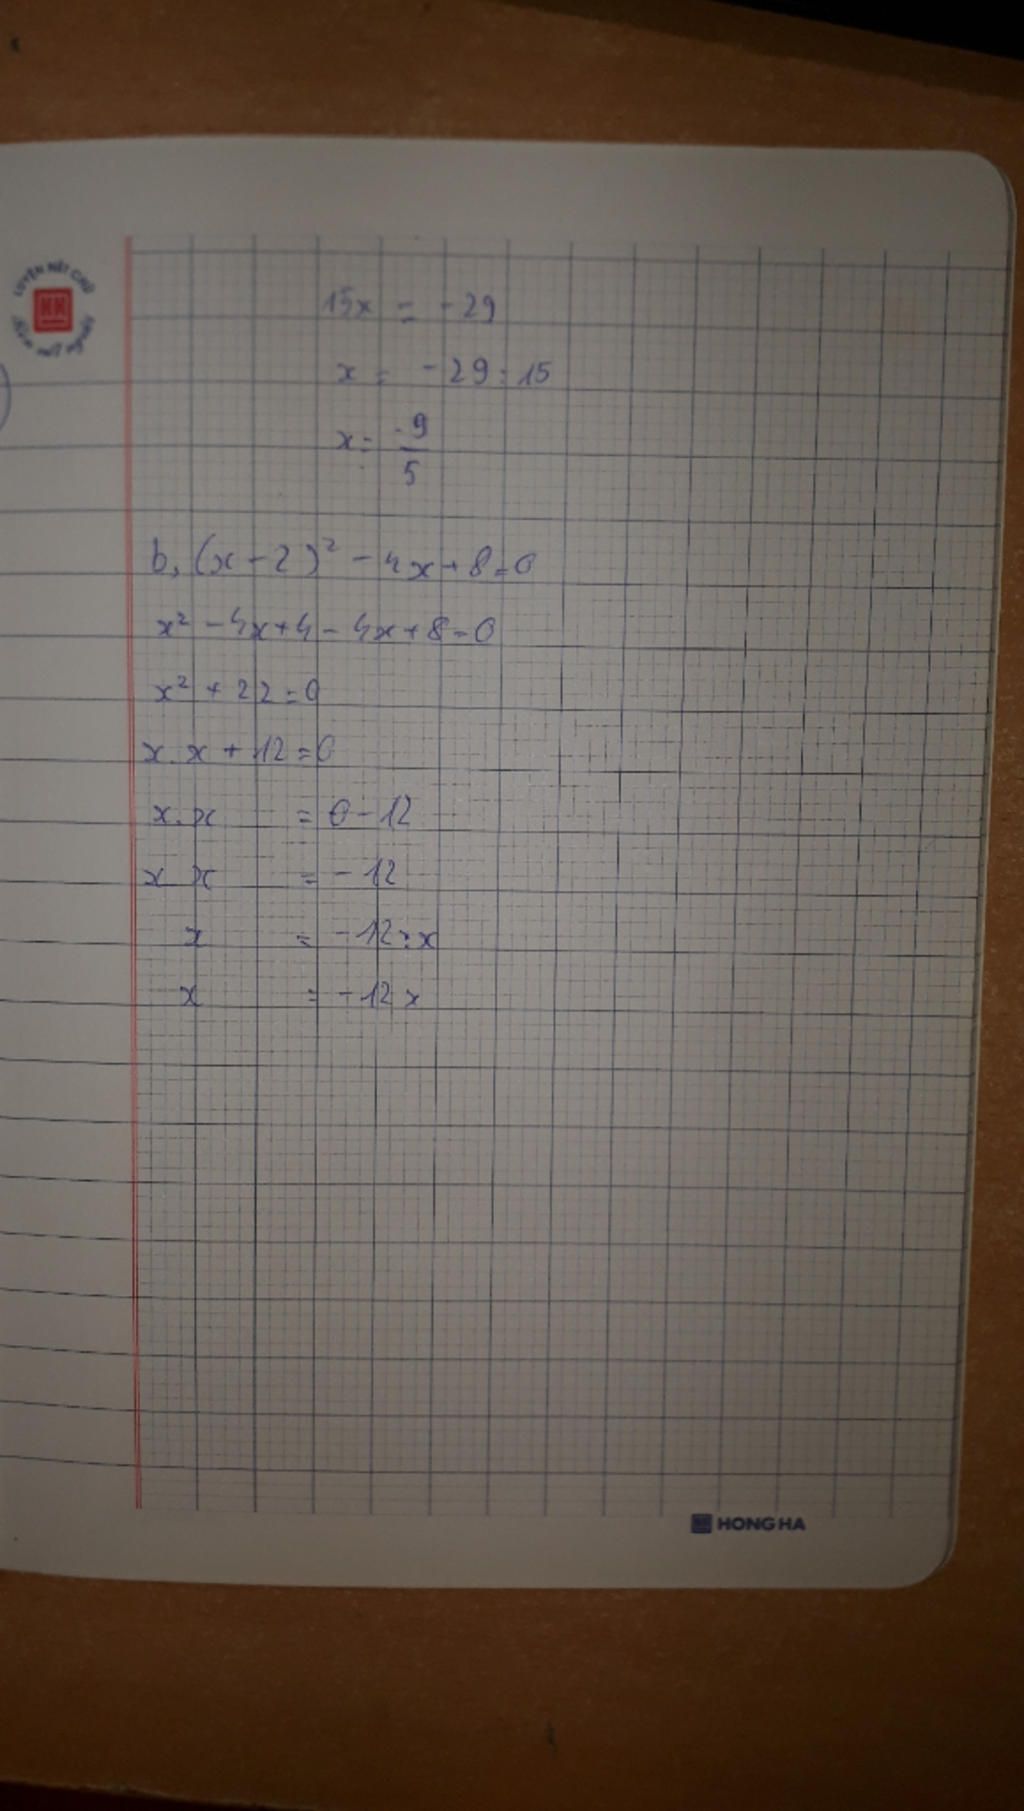 LUYỆN NÉT CHỮ
15x = -29
x = -29 : 15
x = -9/5
b, (x-2)² - 4x + 8 = 0
x² - 4x + 4 - 4x + 8 = 0
x² + 22 = 0
x.x + 12 = 0
x.x = 0 - 12
x x = -12
x = -12 : x
x = -12 x
HONG HA